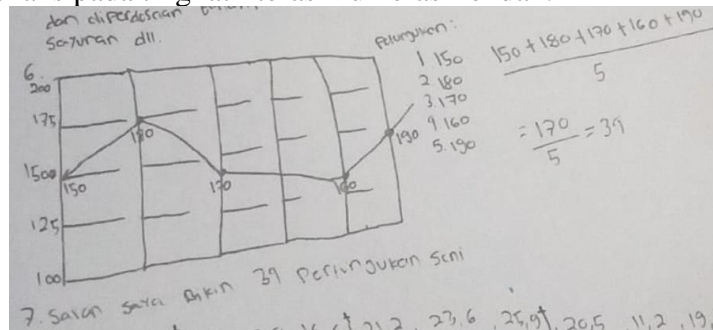 dan diperdesnan
Sayuran dll.
6.
200
175
1500
125
100
150
180
170
160
190
Pertungukan:
1 150
2 180
3. 170
4. 160
5. 190
150 + 180 + 170 + 160 + 190
5
= 170 = 39
5
7. Saran saya Bikin 39 Pertunjukan Seni
21,2 23,6 25,9 20,5 11,2 19,